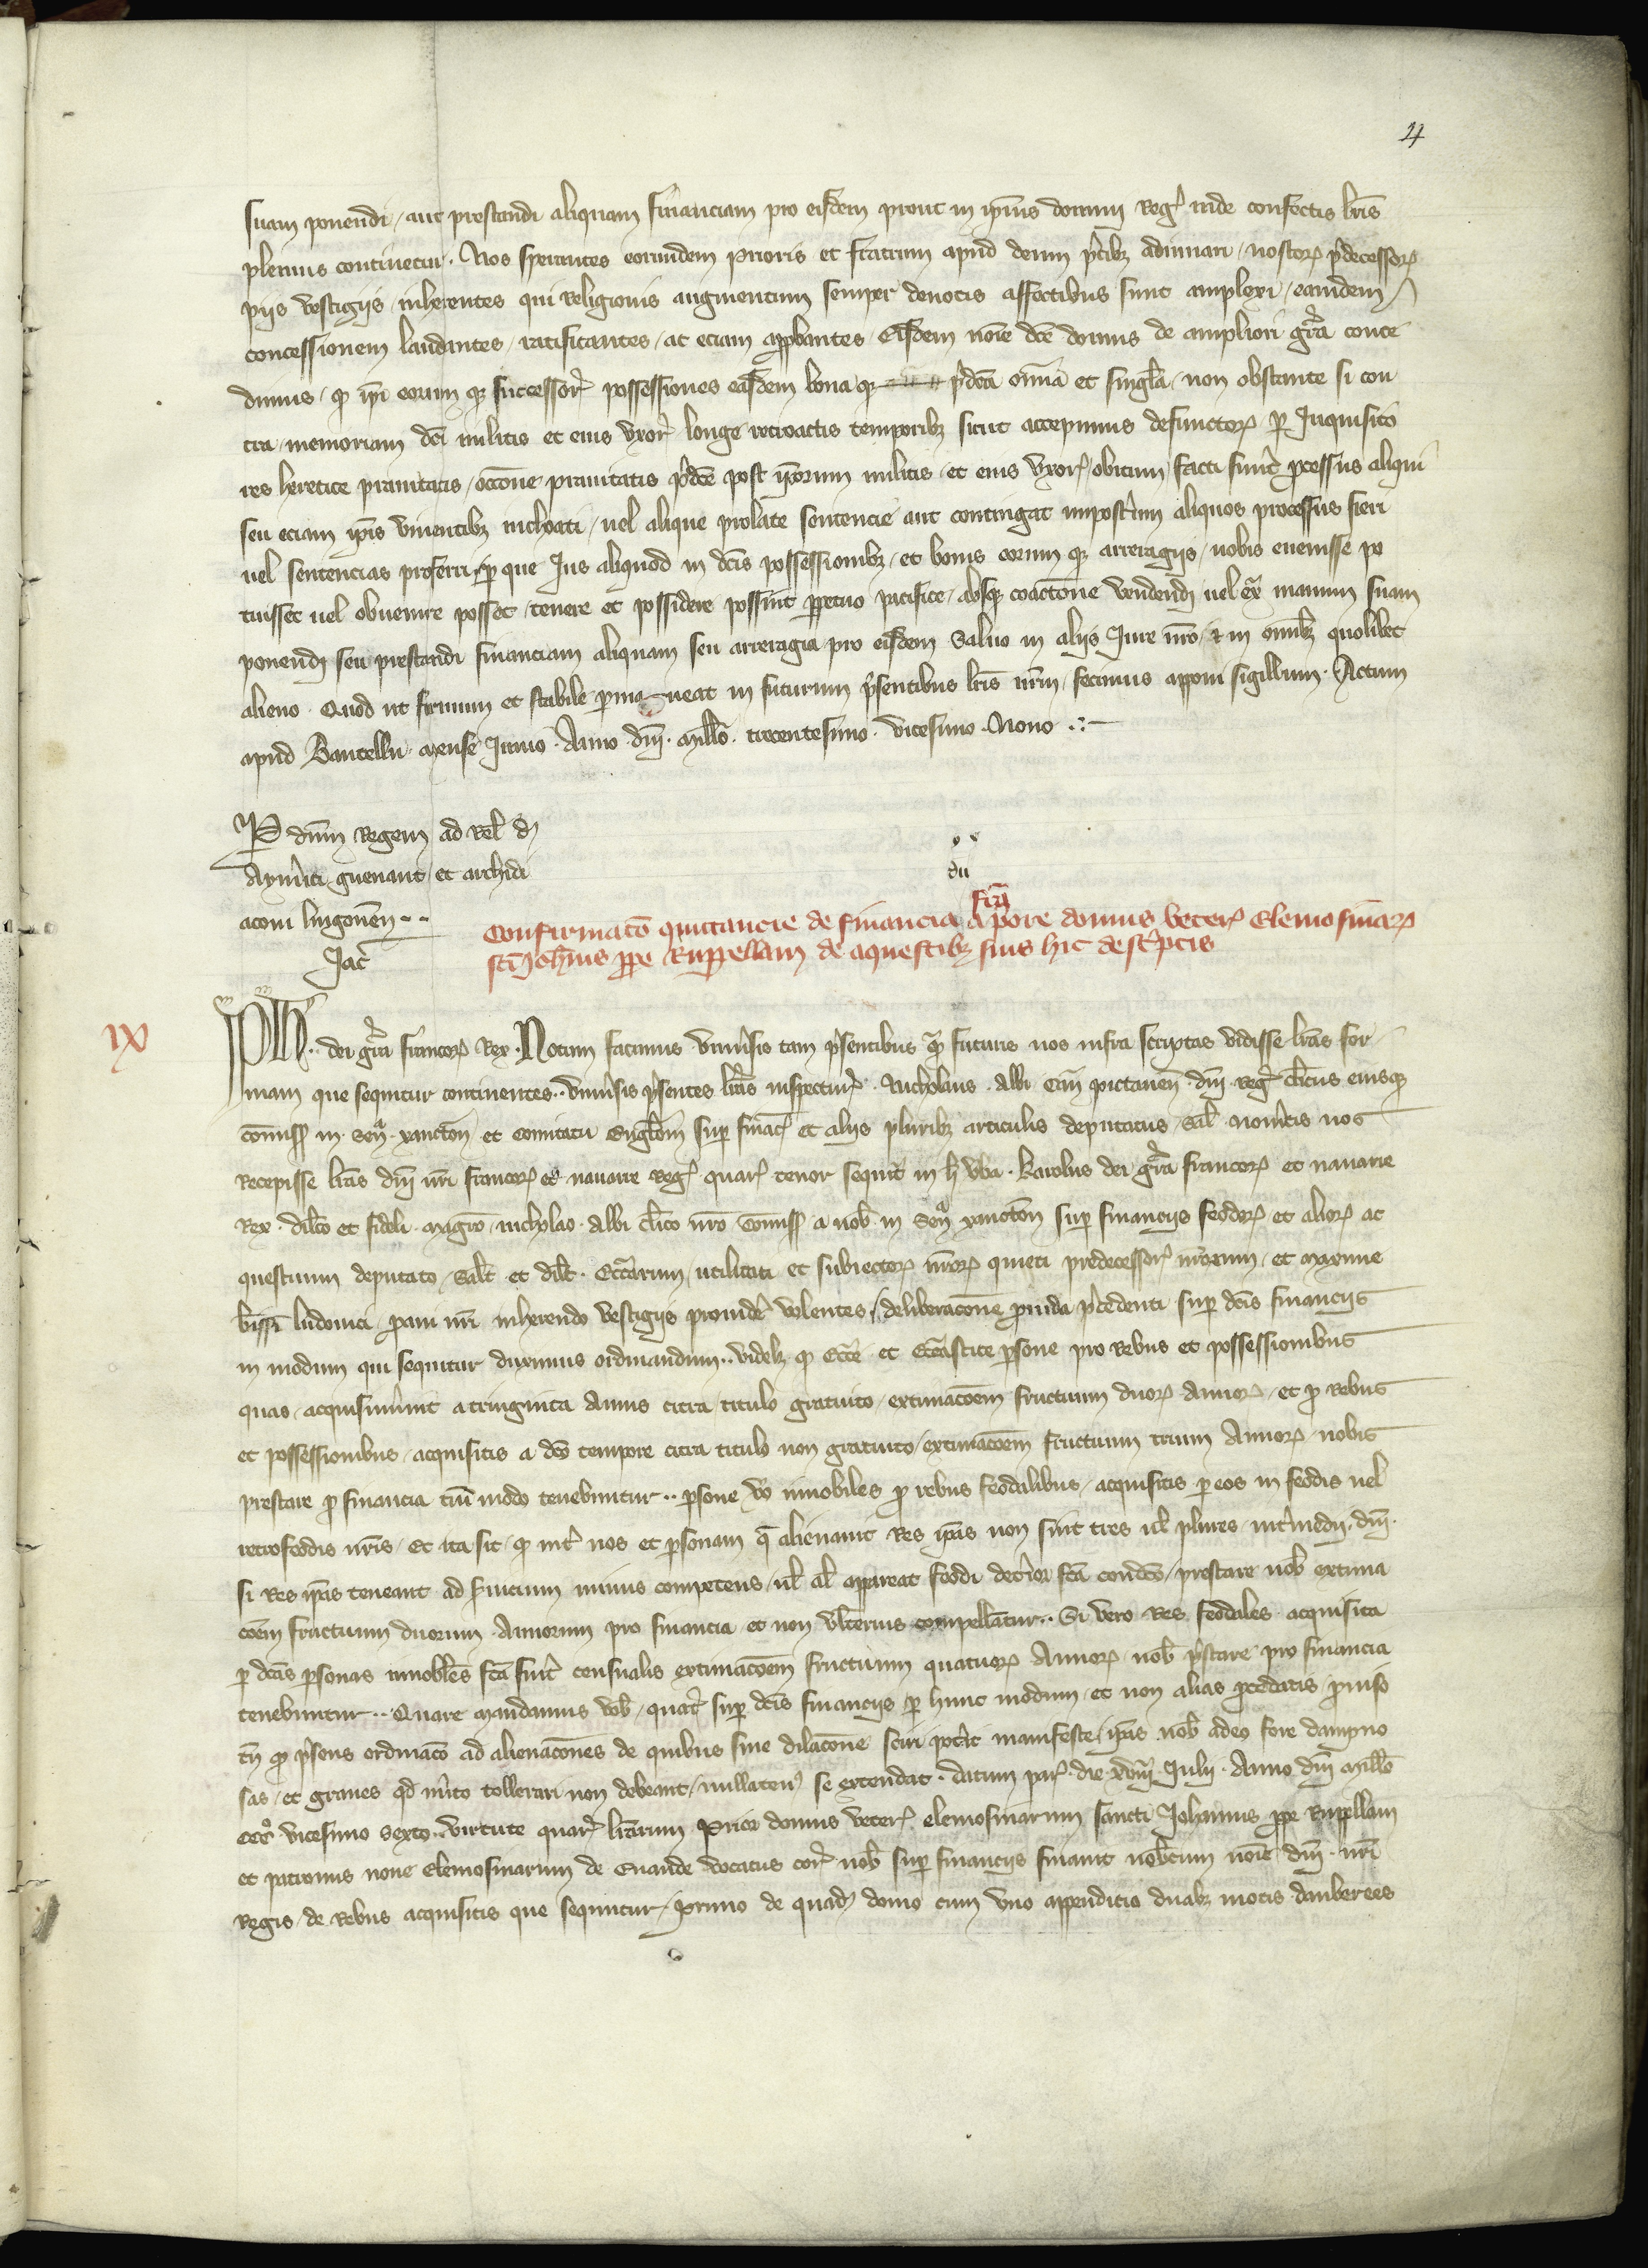 4
suam ponendi / aut prestandi aliquam financiam pro eisdem prout in ip̄ius domini Reg̾ inde confectis lr̄is
plenius continetur . Nos sperantes eorundem Prioris et fratrum apud deum p̄cibz adiuuari / nostroꝝ p̄decessoꝝ
pijs vestigijs / inherentes qui Religionis augmentum semper deuotis affectibus sunt amplexi / eamdem
concessionem laudantes / ratificantes / ac eciam app̄bantes / Eisdem noīe dc̄e domus de ampliori gr̄a conce
dimus / qͦ ip̄i eorum qꝫ successor̾ possessiones easdem bona qꝫ p̄dc̄a om̄ia et singl̄a / non obstante si con
tra / memoriam dc̄i militis et eius vxor̾ longe retroactis temporibꝫ sicut accepimus defunctoꝝ ꝑ Inquisito
res heretice prauitatis / occōne prauitatis p̄dc̄e post ip̄orum militis / et eius vxor̾ / obitum / facti sunt ꝓcessus aliqui
seu eciam ip̄is viuentibꝫ inchoati / uel alique prolate sentencie aut contingat imposterum aliquos processus fieri
uel sentencias proferri / ꝑ que Ius aliquod in dc̄is possessionibꝫ / et bonis eorum qꝫ arreragijs / nobis euenisse po
tuisset uel obuenire posset / tenere et possidere possint ꝑpetuo pacifice / absqꝫ coactōne vendendj uel ex̄ manum suam
ponendj seu prestandi financiam aliquam seu arreragia pro eisdem Saluo in alijs Iure nr̄o / ⁊ in om̄ibꝫ quolibet
alieno . Quod ut firmum et stabile ꝑma neat in futurum p̄sentibus lr̄is nr̄m / fecimus apponi sigillum . Actum
apud Baucellu / mense Iunio . Anno . dn̄i . mill̄o . trecentesimo . vicesimo . Nono .
P dn̄m Regem ad Rel̄ dj
Aym̄ici guenaut / et archidi
aconi lingonen̄ ..
Jac̾
du
fcā
Confirmac̄o quittancie de financia a p̄ore domus veter̾ Elemosinaꝝ
sc̄i Joh̄nis ꝓpe Ruppellam de aquestibꝫ suis hic desc̾ptis
ix
Ph̄ .. dei gr̄a francoꝝ Rex . Notum facimus vniu̾sis tam p̄sentibus qͣ futuris nos infra scriptas vidisse lr̄as for
mam que sequitur continentes .. vniu̾sis p̄sentes lr̄as inspectur̾ . Nicholaus . Albi Can̄ Pictauen̄ . dn̄i . Reg̾ cl̄icus eiusqꝫ
comiss̄ in . Sen̄ . xancton̄ et Comitatu Engl̄om̄ suꝑ finac̾ et alijs pluribꝫ articulis deputatus / Sal̄ . Nou̾itis nos
Recepisse lr̄as dn̄i nr̄i francoꝝ et nauarre Reg̾ . quar̾ . tenor sequit̾ in h̄ vb̄a . Karolus dei gr̄a francoꝝ et nauarre
Rex . dil̄co et fideli . magr̄o . nicholao . Albi cl̄ico nr̄o Comiss̄ a nob̄ in Sen̄ xancton̄ suꝑ financijs feodoꝝ et alioꝝ ac
questuum deputato / Sal̄t et dil̄t . Ecc̄arum / utilitati et subiectoꝝ nr̄oꝝ quieti predecessor̾ nr̄orum / et maxime
b̄issi Ludouici / ꝓaui nr̄i inherendo vestigijs prouide volentes / deliberacōne prouida p̄cedenti suꝑ dc̄is financijs
in modum qui sequitur duximus ordinandum .. videlꝫ qͦ Ecc̄e et Ecc̄astice ꝑsone pro Rebus et possessionibus
quas / acquisiuer̄unt a triginta Annis citra / titulo gratuito / extimacōem fructuum duoꝝ Annoꝝ / et ꝓ Rebus
et possessionibus / acquisitis a dc̄o tempore citra titulo non gratuito / extimacōem fructuum trium Annoꝝ / nobis
prestare ꝓ financia tm̄modo tenebuntur .. ꝑsone vͦ innobiles ꝓ rebus feodalibus / acquisitis ꝑ eos in feodis uel
retrofeodis nr̄is / Et ita sit / qͦ int̾ nos et ꝑsonam q̄ alienauit Res ip̄as non sint tres ul̄ plures / int̾medij . dn̄i .
si Res ip̄as teneant ad seruicium minus competens / ul̄ al̄ appareat feodi det̾ior fc̄a condic̄o / prestare nob̄ extima
cōem fructuum duorum . Annorum pro financia et non vlterius compellantur .. Si vero Res feodales acquisita
ꝑ dc̄as ꝑsonas innobl̄es fc̄a fuit̾ censualis extimacōem fructuum quatuoꝝ Annoꝝ nob̄ p̄stare pro financia
tenebuntur .. Quare mandamus vob̄ / quat̾ suꝑ dc̄is financijs ꝑ hunc modum / et non alias ꝓcedatis / prouiso
tn̄ qͦ p̄sens ordinac̄o ad alienacōnes de quibus sine dilacōne sciri pot̾it manifeste / ip̄as nob̄ adeo fore dampno
sas / et graues qd̄ m̾ito tollerari non debeant / nullaten̾ se extendat . datum par̾ . die . xviij . Iulij . Anno dn̄i mill̄o
cccͦ vicesimo sexto . virtute quar̾ lr̄arum Prior domus veter̾ elemosinarum sancti Johannis ꝓpe Rupellam
et patronus noue Elemosinarum de Enande vocatus cor̾ nob̄ suꝑ financijs finauit nob̄cum noīe dn̄i . nr̄i
Regis / de Rebus acquisitis que sequntur / Primo de quadj domo cum vno appendicio duabꝫ motis dauberees